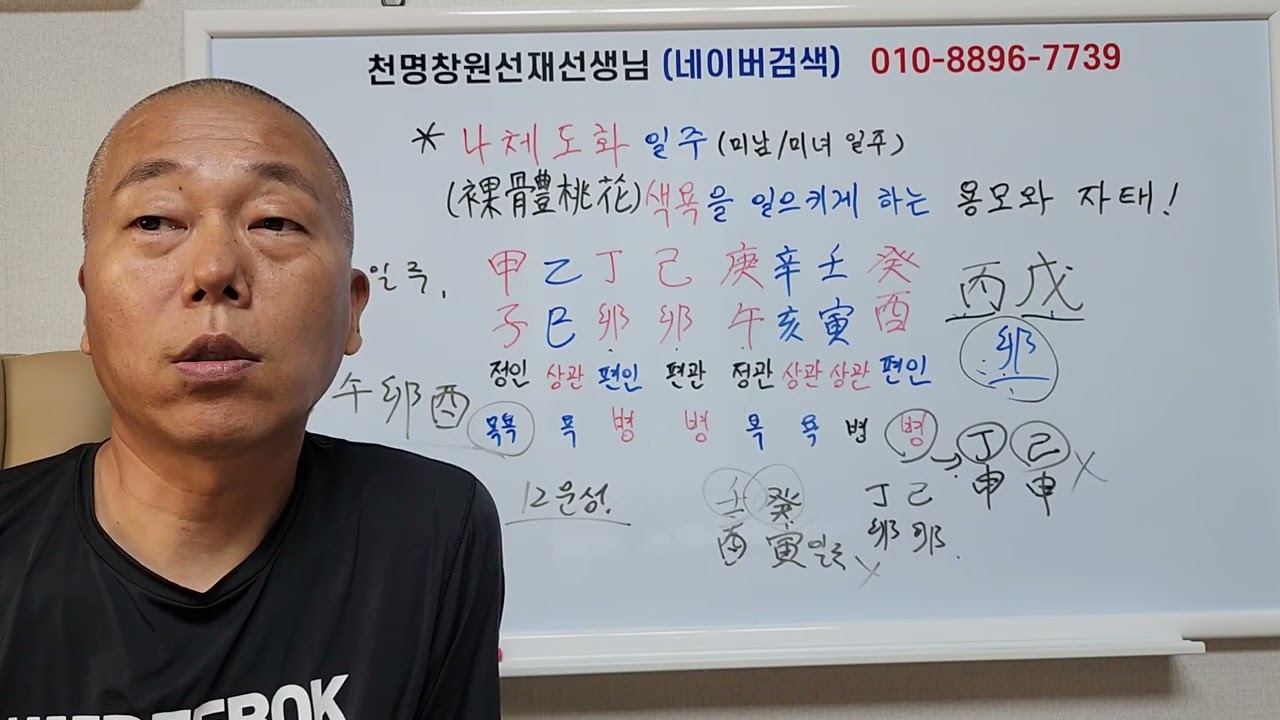 천명창원선재선생님 (네이버검색) 010-8896-7739
* 나체도화 일주 (미남/미녀 일주)
(裸骨體桃花) 색욕을 일으키게 하는 용모와 자태!
일주, 甲 乙 丁 己 庚 辛 壬 癸 丙 戊
子 巳 卯 卯 午 亥 寅 酉 卯
정인 상관 편인 편관 정관 상관 상관 편인
午 卯 酉 목욕 욕 병 병 욕 욕 병 병 → 丁 己
申 申 X
12운성. 壬 癸 丁 己
酉 寅일주 X 卯 卯.